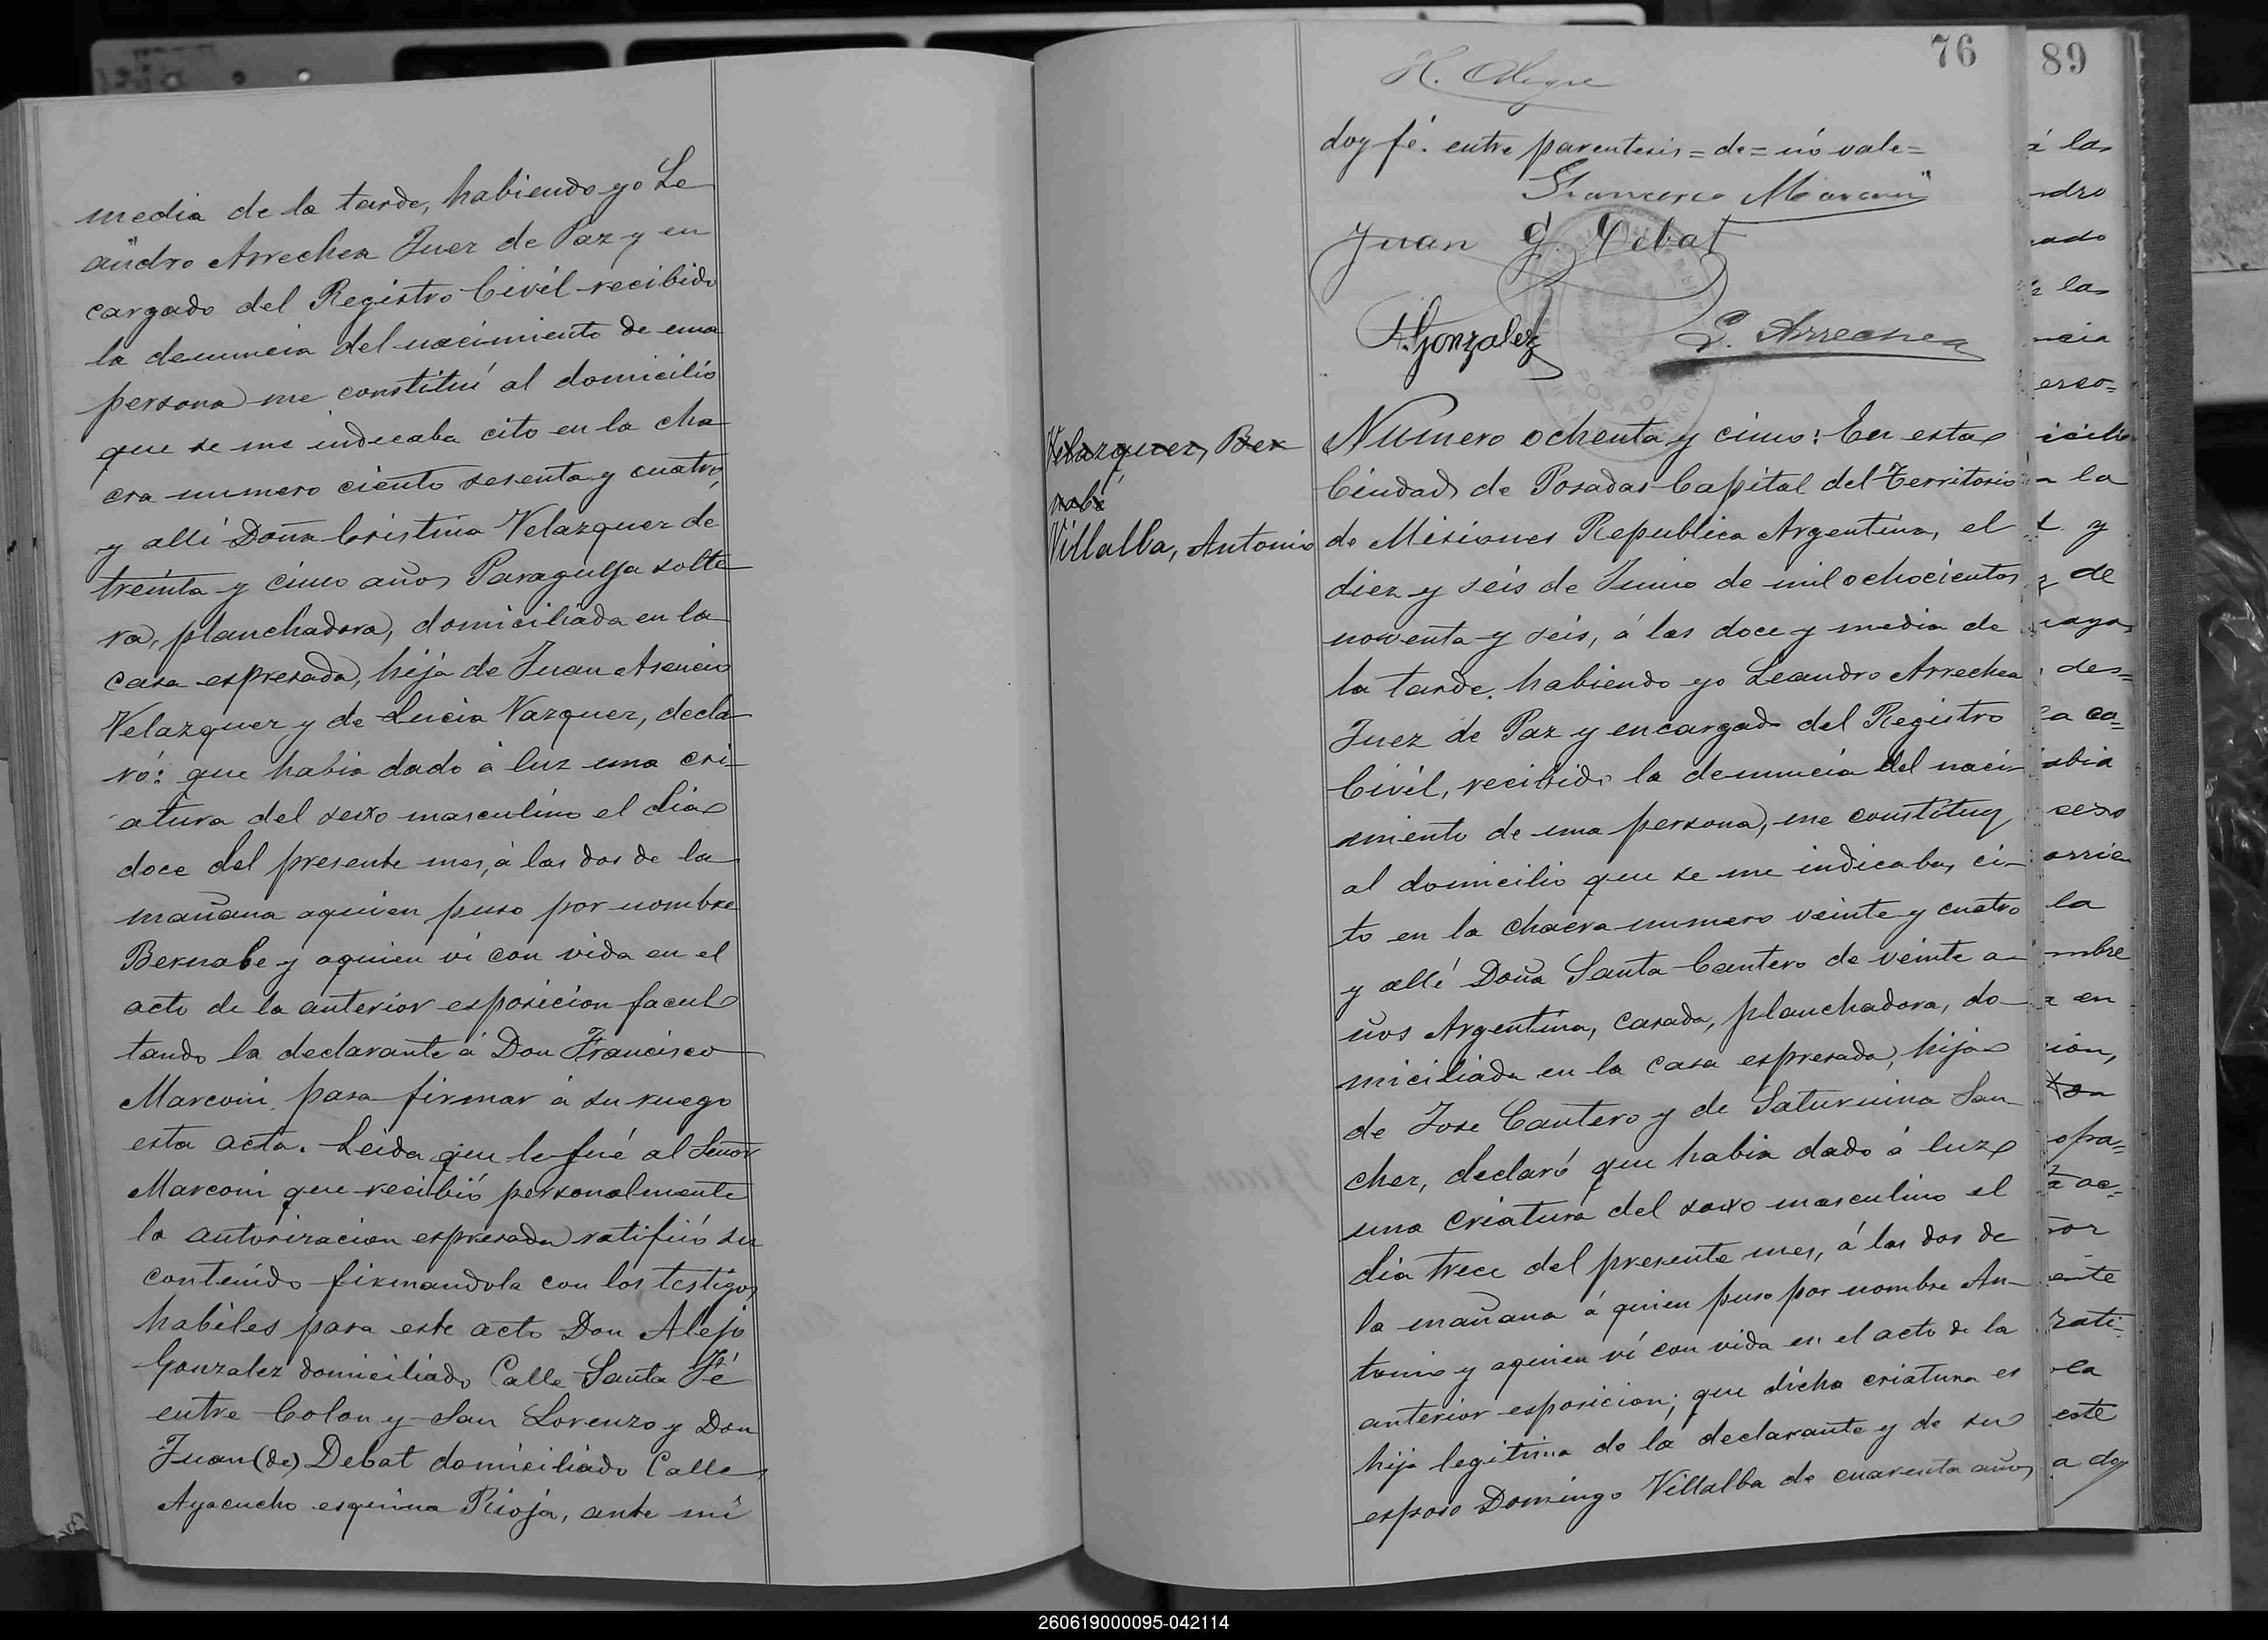 media de la tarde, habiendo yo Le
andro Arrechea Juez de Paz y en
cargado del Registro Civil recibido
la denuncia del nacimiento de una
persona me constituí al domicilio
que se me indicaba cito en la cha
cra numero ciento sesenta y cuatro,
y allí Doña Cristina Velazquez de
treinta y cinco años Paraguaya solte
ra, planchadora, domiciliada en la
casa espresada, hija de Juan Asencio
Velazquez y de Lucia Vazquez, decla
ró: que habia dado á luz una cri
atura del sexo masculino el dia
doce del presente mes, á las dos de la
mañana aquien puso por nombre
Bernabe y aquien ví con vida en el
acto de la anterior esposicion facul
tando la declarante á Don Francisco
Marconi para firmar á su ruego
esta acta. Leida que le fué al Señor
Marconi que recibió personalmente
la autorizacion espresada ratificó su
contenido firmandola con los testigos
habiles para este acto Don Alejo
Gonzalez domiciliado Calle Santa Fé
entre Colon y San Lorenzo y Don
Juan (de) Debat domiciliado Calle
Ayacucho esquina Rioja, ante mí
76
H. Alegre
doy fé. entre parentesis = de = nó vale =
Francisco Marconi
Juan G. Debat
A. Gonzalez L. Arrechea
POSADAS
Velazquez, Ber
nabé
Villalba, Antonio
Numero ochenta y cinco: En esta
Ciudad de Posadas Capital del Territorio
de Misiones Republica Argentina, el
diez y seis de Junio de mil ochocientos
noventa y seis, á las doce y media de
la tarde, habiendo yo Leandro Arrechea
Juez de Paz y encargado del Registro
Civil, recibido la denuncia del naci-
miento de una persona, me constituy
al domicilio que se me indicaba, ci-
to en la chacra numero veinte y cuatro
y allí Doña Santa Cantero de veinte a-
ños Argentina, casada, planchadora, do-
miciliada en la casa espresada, hija
de Jose Cantero y de Saturnina San-
chez, declaró que habia dado á luz
una criatura del sexo masculino el
dia trece del presente mes, á las dos de
la mañana á quien puso por nombre An-
tonio y aquien ví con vida en el acto de la
anterior esposicion; que dicha criatura es
hijo legitima de la declarante y de su
esposo Domingo Villalba de cuarenta años
89
á la
ndro
ado
la
ncia
erso=
icilio
la
y
de
raya
des=
a ca=
abia
sexo
orrie
la
mbre
en
ion,
opa=
ac=
or
ente
rati=
la
este
a doy
260619000095-042114